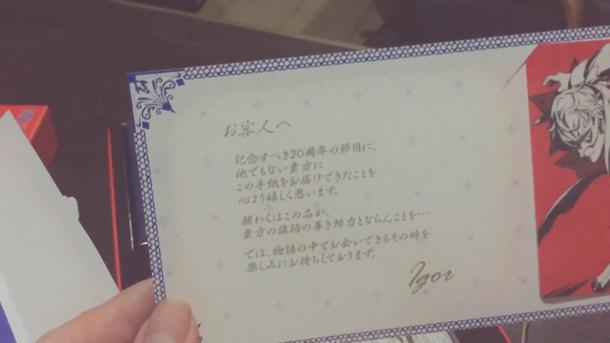 お客人へ
記念すべき20周年の節目に、
他でもない貴方に
この手紙をお届けできたことを
心より嬉しく思います。
願わくはこの品が、
貴方の旅路の善き助力とならんことを…
では、物語の中でお会いできるその時を
楽しみにお待ちしております。
Igor